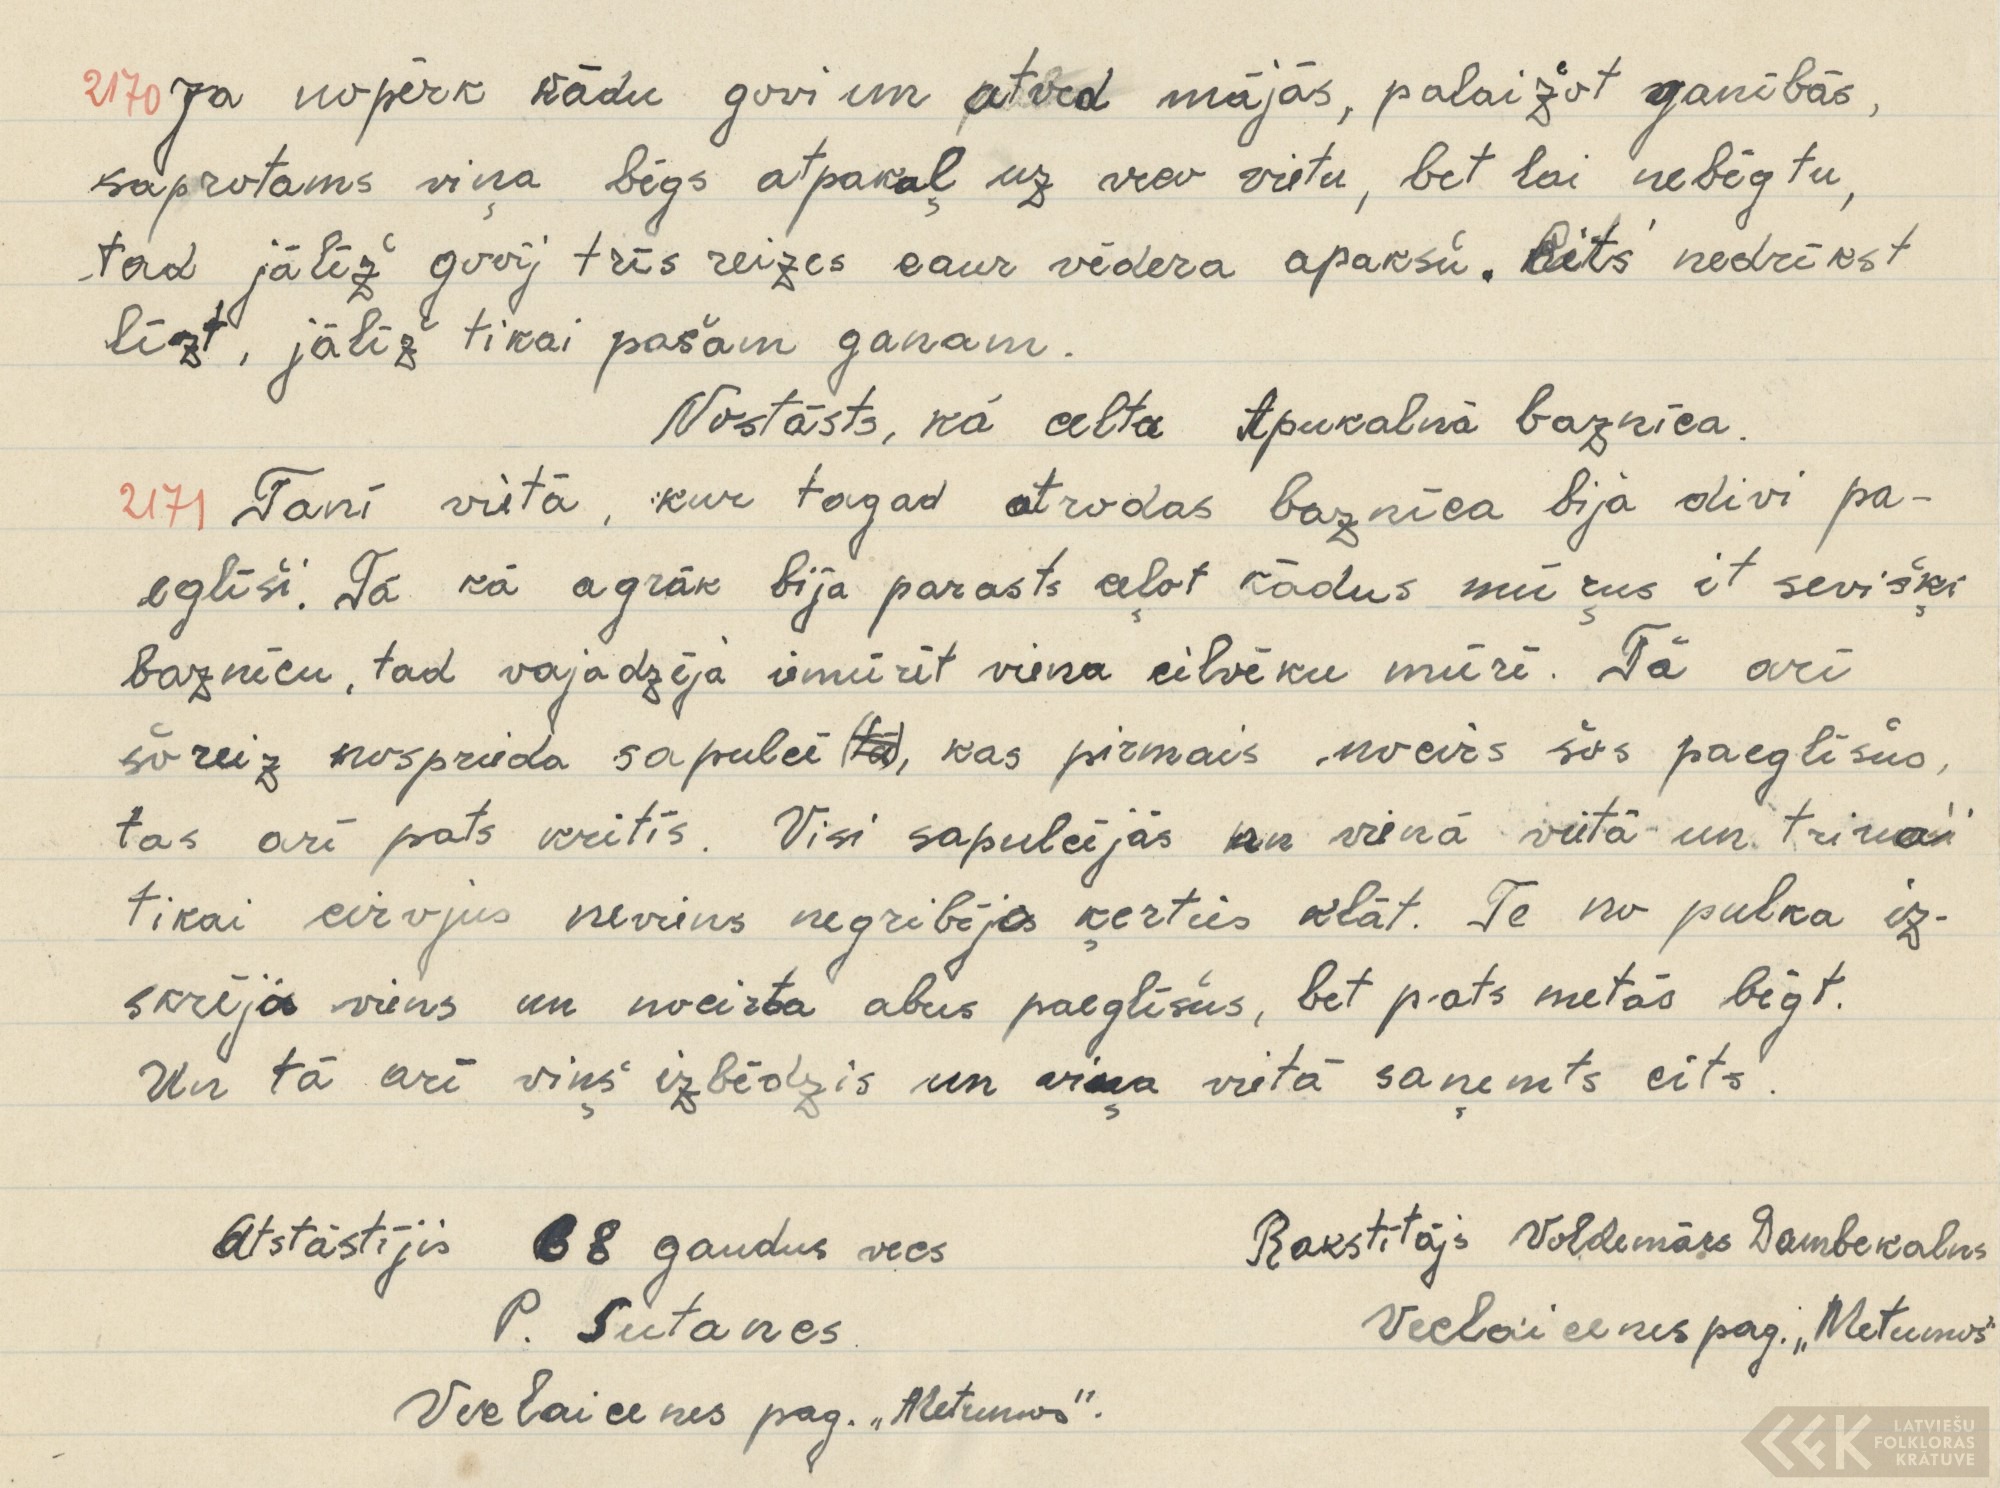 2170 Ja nopērk kādu govi un atved mājās, palaižot ganībās,
saprotams viņa bēgs atpakaļ uz veco vietu, bet lai nebēgtu,
tad jāliž govij trīs reizes caur vēdera apakšu. Cits nedrīkst
līzt, jāliž tikai pašam ganam.
Nostāsts, kā celta Apukalnā baznīca.
2171 Tanī vietā, kur tagad atrodas baznīca bija divi pa-
eglīši. Tā kā agrāk bija parasts ceļot kādus mūŗus it sevišķi
baznīcu, tad vajadzēja iemūrēt viena cilvēku mūrī. Tā arī
šoreiz nosprieda sapulcē (tā), kas pirmais nocirs šos paeglīšus,
tas arī pats kritīs. Visi sapulcējās un vienā vietā un
tikai cirvjus neviens negribēja ķerties klāt. Te no pulka iz-
skrēja viens un nocirta abus paeglīšus, bet pats metās bēgt.
Un tā arī viņš izbēdzis un viņa vietā saņemts cits.
Atstāstījis 68 gaudus vecs
Rakstītājs Voldemārs Dambekalns
P. Sutanes
Veclaicenes pag. „Metumos"
Veclaicenes pag. „Metumos".
LATVIEŠU
FOLKLORAS
KRĀTUVE